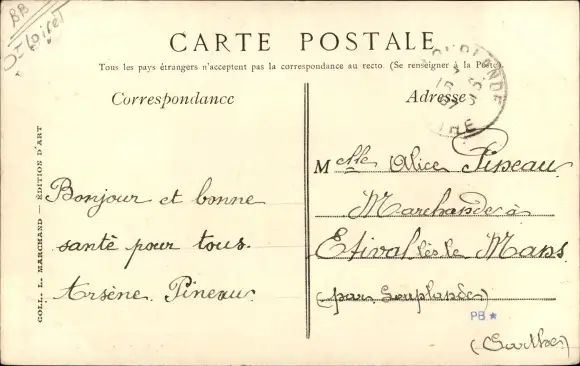 BB
Loiret
CARTE POSTALE
Tous les pays étrangers n'acceptent pas la correspondance au recto (Se renseigner à la Poste)
Correspondance
Adresse
COLL. L. MARCHAND — ÉDITION D'ART
Bonjour et bonne
santé pour tous.
Arsène Pineau
Melle Alice Pineau
Marchande à
Etival lès le Mans
(par Souplandes)
PB★
(Sarthe)